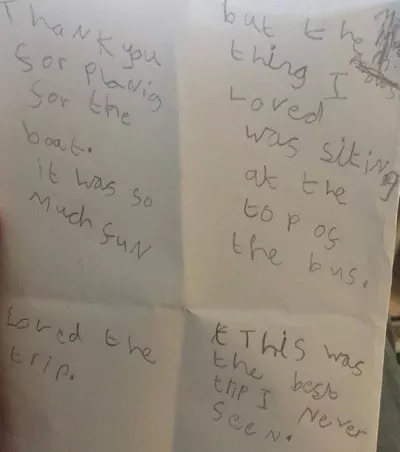 Thank you
for planig
for the
boat.
it was so
much fun
but the
thing I
Loved
was siting
at the
top of
the bus.
Loved the
trip.
This was
the best
trip I never
seen.